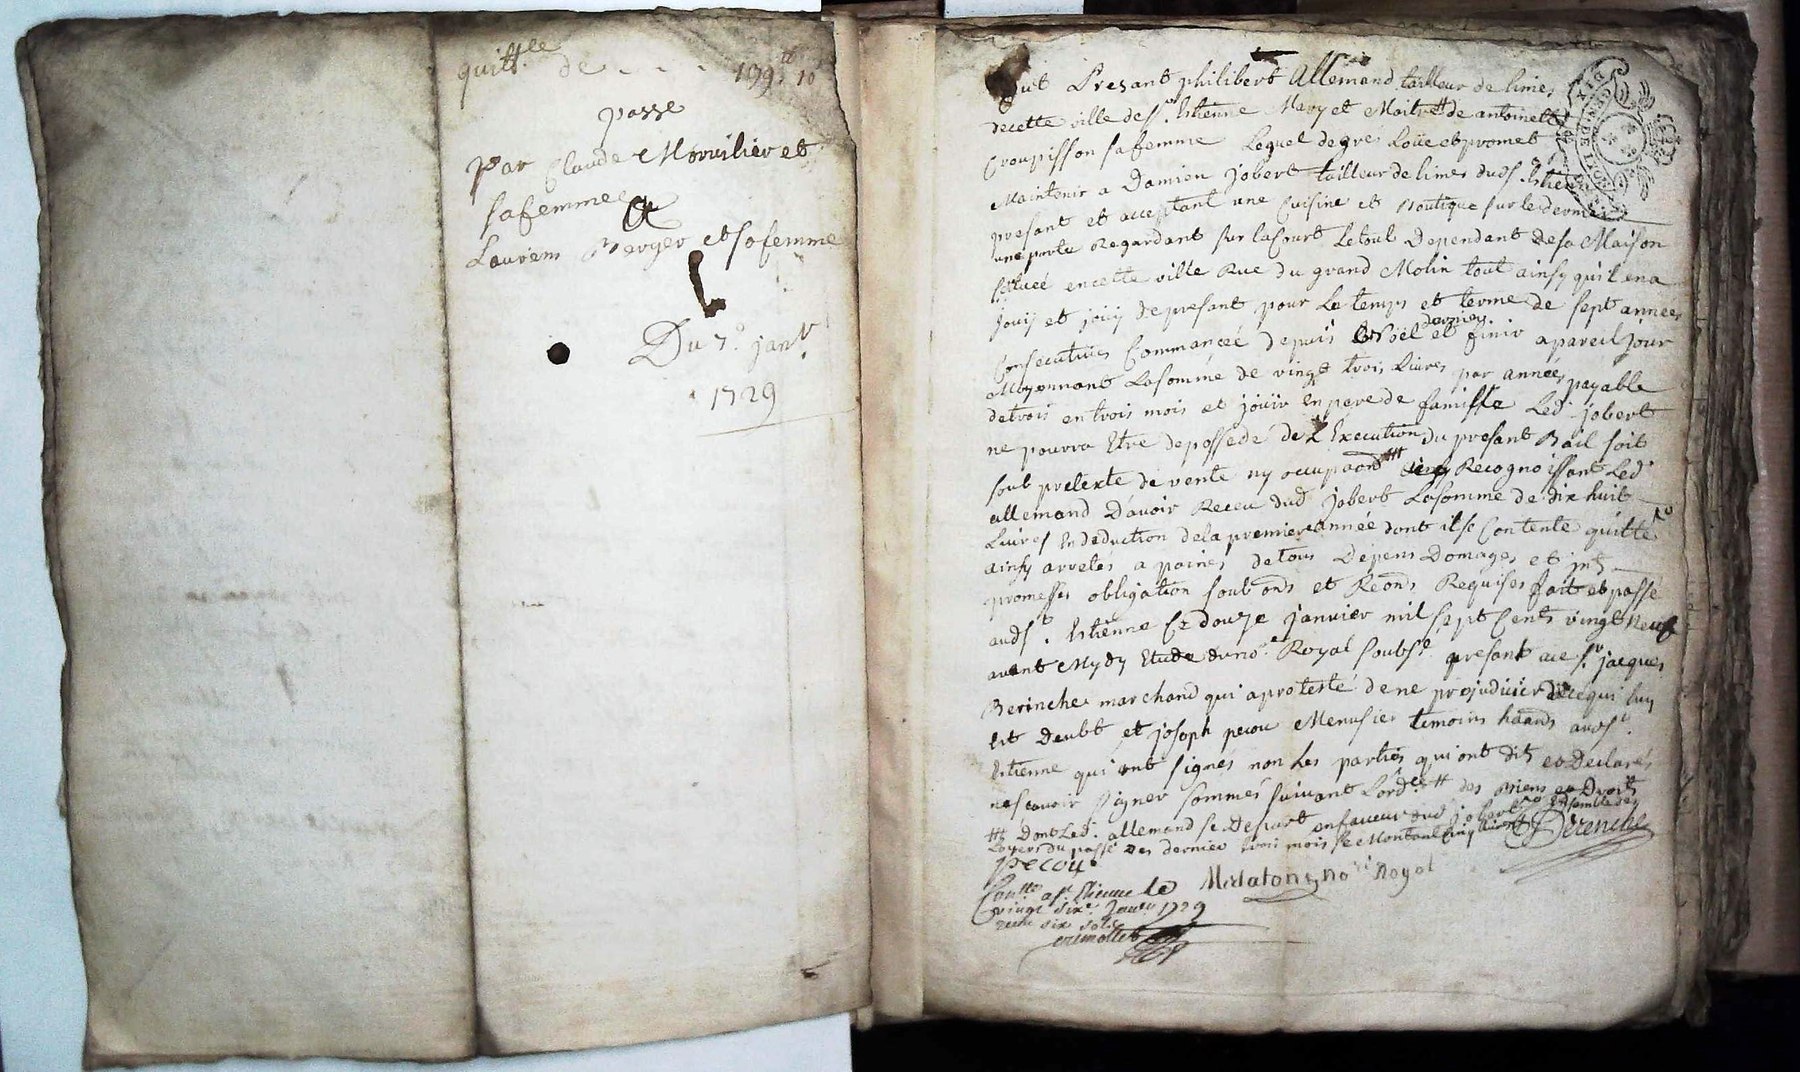 quitt.ce de . . . 179tt 10s
passe
Par Claude Morvilier et
sa femme &
Laurens Berger et sa femme
Du 7e janvr
1729
fut Presant philibert Allemand tailleur de limes
de cette ville de St Estienne Mary et Maitre de antoinette
Croupisson sa femme Lequel de gre Loüe et promet
Maintenir a Damien jobert tailleur de limes dud St Estienne
presant et acceptant une Cuisine et Boutique sur le dernier
une porte Regardant sur la Court Le tout Dependant de sa Maison
Scituée en cette ville Rue du grand Molin tout ainsy qu'il en a
jouy et jouy de presant pour Le temps et terme de sept années
dernier
Consecutives Commancée depuis Noël et finir a pareil jour
Moyennant La somme de vingt trois Livres par année payable
de trois en trois mois et joüir en pere de famille Led. jobert
ne pourra Etre depossede de L'Execution du presant Bail soit
soub pretexte de vente ny occupaon Recognoissant Led.
allemand D'avoir Receu dud jobert La somme de dix huit
Livres En deduction de la premiere année dont il se Contente quitte
ainsy arretes a paines de tous Depens Domages et jnts
promesses obligation soub ons et Reons Requises fait et passe
aud St. Estienne Ce douze janvier mil sept Cents vingt neuf
avant Mydy Etude du nore Royal soubsé presant a ce Sr. jacques
Berinche marchand qui a protesté de ne prejudicier a ce qui luy
Est Deubt et joseph pecou Menusier temoins haands aud St.
Estienne qui ont signés non Les parties qui ont dit et Declarés
ne scavoir signer sommés suivant L'ordce tt des Biens et Droits
ttt Dont Led. allemand se Depart en faveur dud jobert Ensemble des
Loyers du passé des dernier trois mois se Montant Cinq Livres Berenche
pecou
Meilaton, nore Royal
Con.lle a St. Etienne le
vingt six.e Janvr 1729
recu six sols